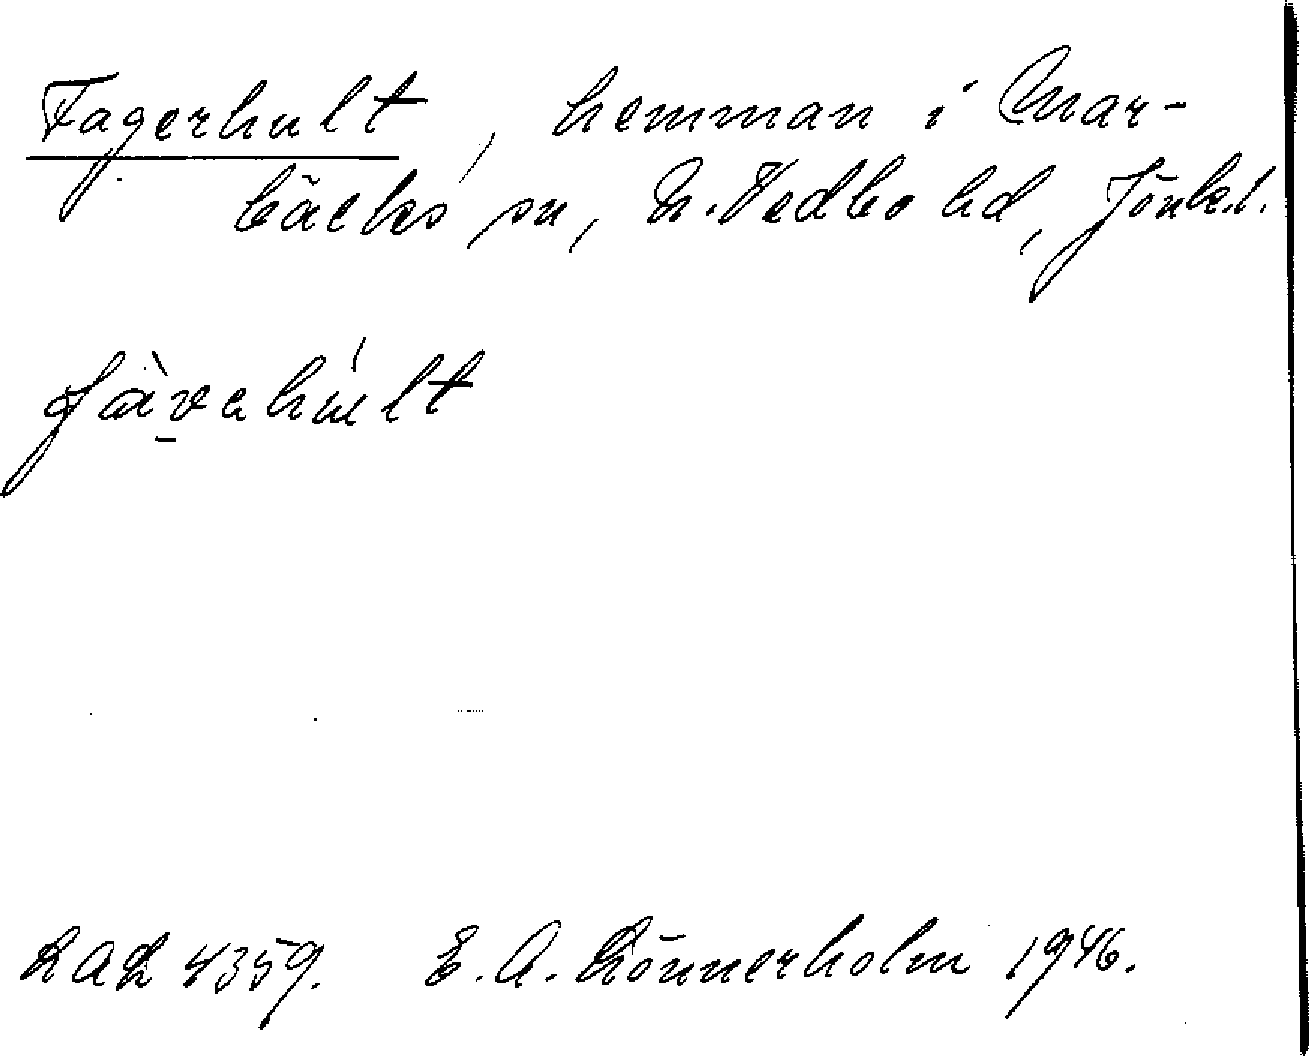 Fagerhult, hemman i Mar-
bäcks sn, N. Vedbo hd, Jönk.l.
fàvahúlt
LAL 4359. E. A. Rönnerholm 1946.